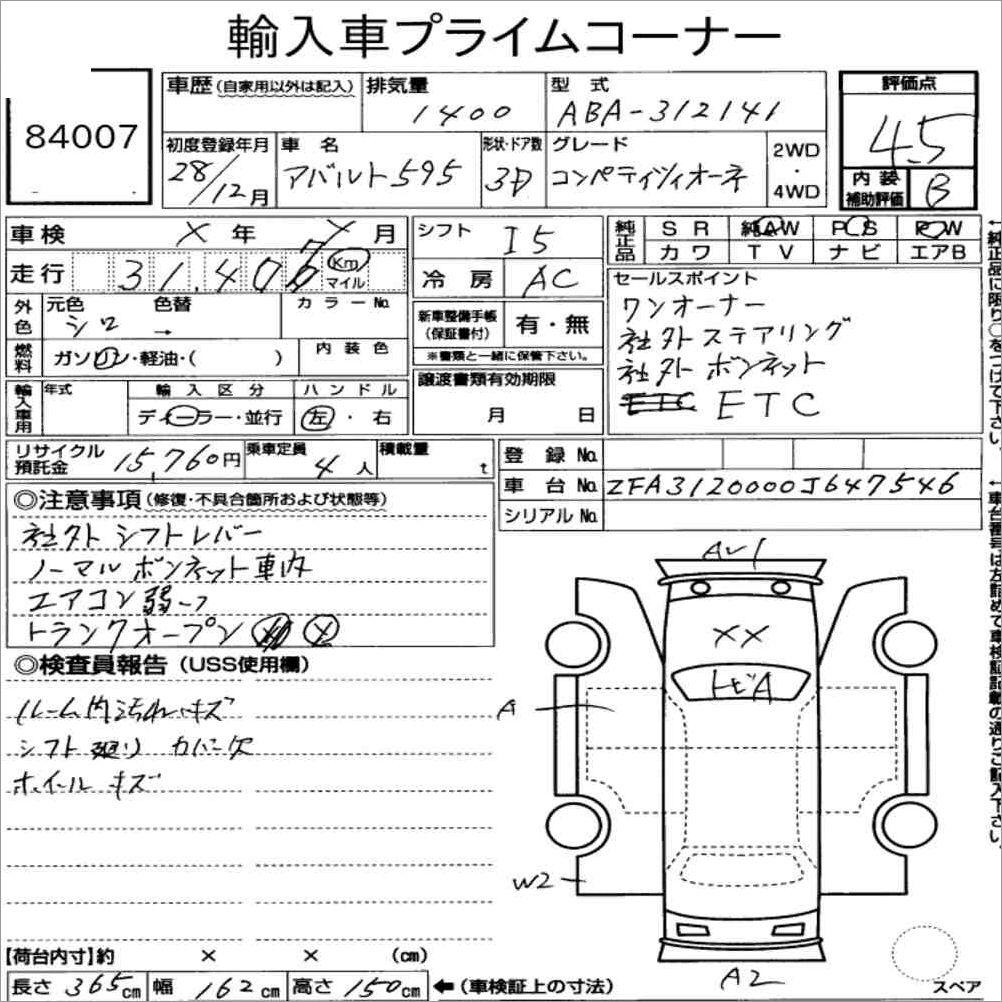 輸入車プライムコーナー
84007
車歴(自家用以外は記入)
排気量
1400
型式
ABA-312141
評価点
4.5
初度登録年月
28/12月
車名
アバルト595
形状・ドア数
3D
グレード
コンペティツィオーネ
2WD
・
4WD
内装
補助評価
B
車検 X 年 X 月
走行 31,40 Km
マイル
外色
元色
シロ
色替
→
カラーNo.
燃料
ガソリン・軽油・( )
内装色
輸入車用
年式
輸入区分
ディーラー・並行
ハンドル
左・右
シフト I5
冷房 AC
新車整備手帳
(保証書付)
有・無
※書類と一緒に保管下さい。
譲渡書類有効期限
月 日
純正品
SR
純AW
PS
PW
カワ
TV
ナビ
エアB
セールスポイント
ワンオーナー
社外ステアリング
社外ボンネット
ETC ETC
←純正品に限り○をつけて下さい。
リサイクル
預託金
15,760円
乗車定員
4人
積載量
t
登録No.
車台No. ZFA3120000J647546
シリアルNo.
←車台番号は左詰めで車検証記載の通りご記入下さい。
◎注意事項(修復・不具合箇所および状態等)
社外シフトレバー
ノーマルボンネット車内
エアコン弱一ッ
トランクオープン X
◎検査員報告(USS使用欄)
ルーム内汚れ、キズ
シフト廻りカバー欠
ホイールキズ
AU1
XX
トビA
A
W2
A2
スペア
【荷台内寸】約 × × (cm)
長さ 365cm 幅 162cm 高さ 150cm ←(車検証上の寸法)